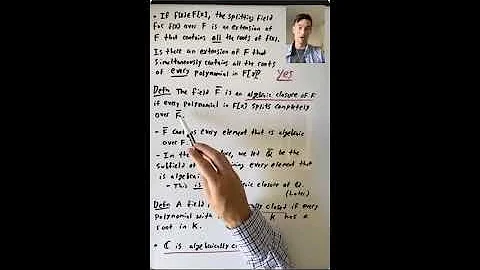 • If f(x)∈F[x], the splitting field
for f(x) over F is an extension of
F that contains all the roots of f(x).
Is there an extension of F that
simultaneously contains all the roots
of every polynomial in F[x]? Yes
Defn: The field F̅ is an algebraic closure of F
if every polynomial in F[x] splits completely
over F̅.
- F̅ every element that is algebraic
over F.
- In the , we let Q̅ be the
subfield of every element that
is algebraic
- This is closure of Q.
(Later)
Defn: A field closed if every
polynomial with has a
root in K.
• ℂ is algebraically